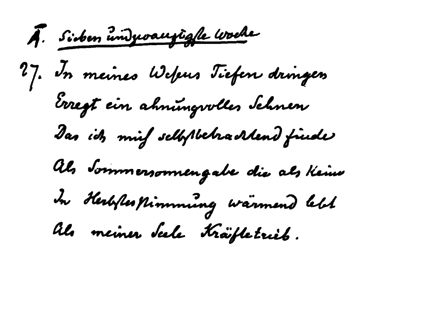 Ā. Siebenundzwanzigste Woche
27. In meines Wesens Tiefen dringen
Erregt ein ahnungsvolles Sehnen
Das ich mich selbstbetrachtend finde
Als Sommersonnengabe die als Keim
In Herbstesstimmung wärmend lebt
Als meiner Seele Kräftetrieb.